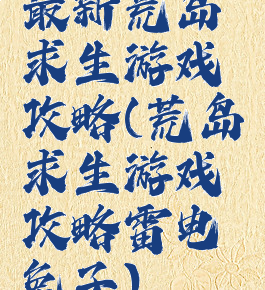 最新荒岛
求生游戏
攻略(荒岛
求生游戏
攻略雷电
兔子)